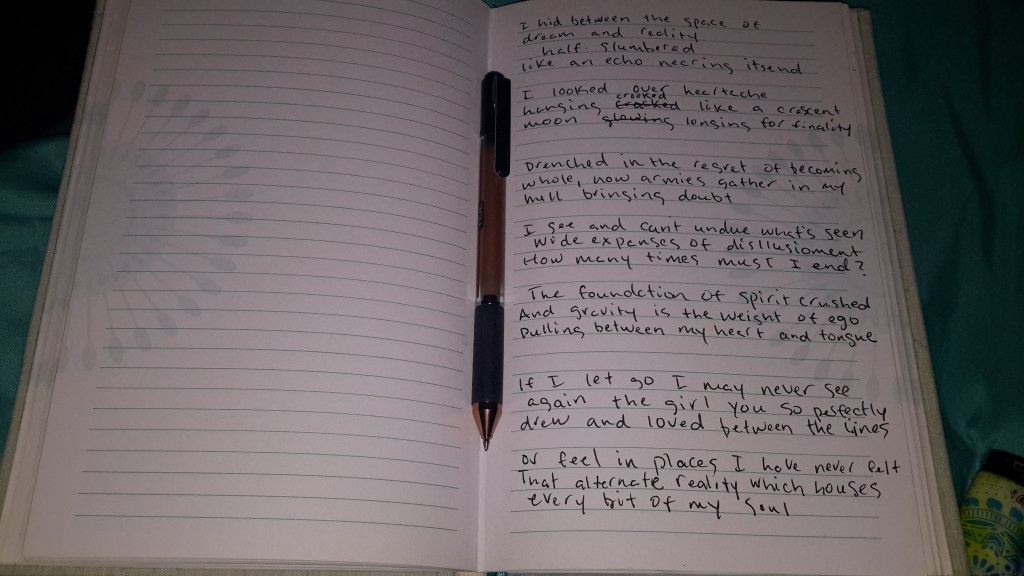 I hid between the space of
dream and reality
half-slumbered
like an echo nearing itsend
I looked over heartache
hanging crooked cracked like a crescent
moon glowing longing for finality
Drenched in the regret of becoming
whole, now armies gather in my
hull bringing doubt
I see and cant undue what's seen
wide expenses of disllusioment
How many times must I end?
The foundation of spirit crushed
And gravity is the weight of ego
pulling between my heart and tongue
If I let go I may never see
again the girl you so perfectly
drew and loved between the lines
Or feel in places I have never felt
That alternate reality which houses
every bit of my soul